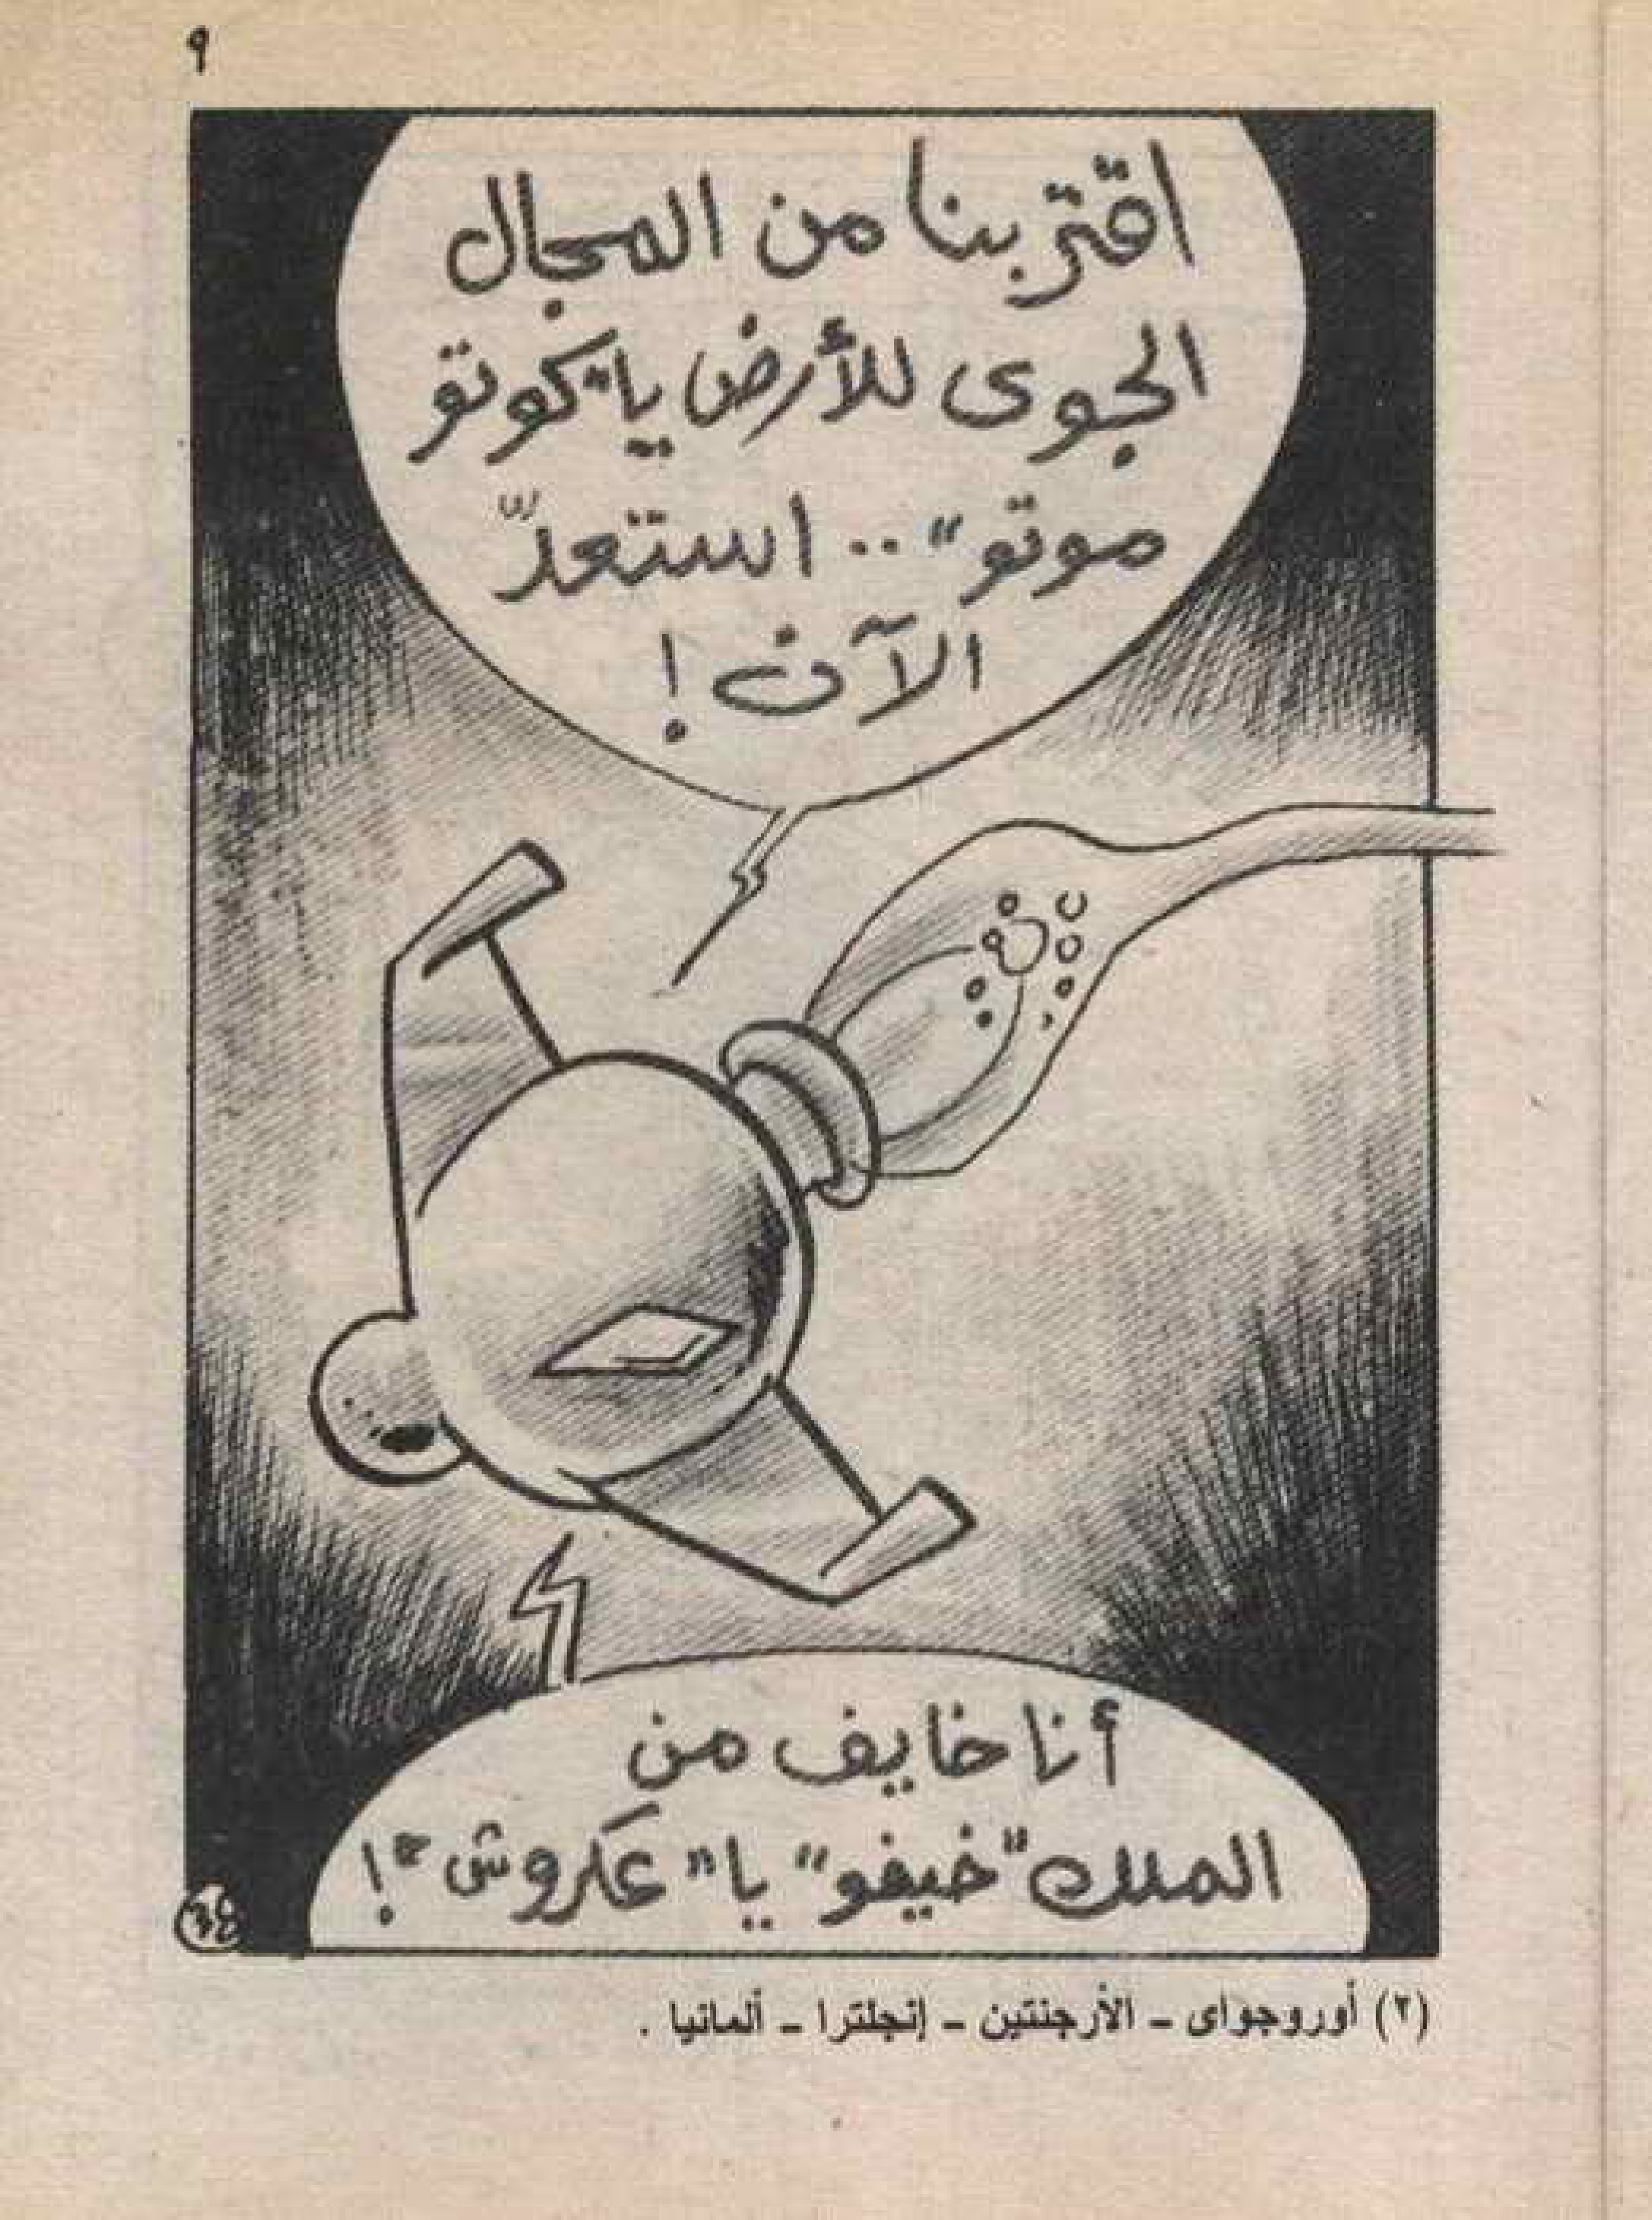 ٩
اقتربنا من المجال
الجوى للأرض يا "كوتو
موتو" .. استعدّ
الآن !
أنا خايف من
الملك "خيفو" يا "عكروش" !
(٢) أوروجواى ـ الأرجنتين ـ إنجلترا ـ ألمانيا .